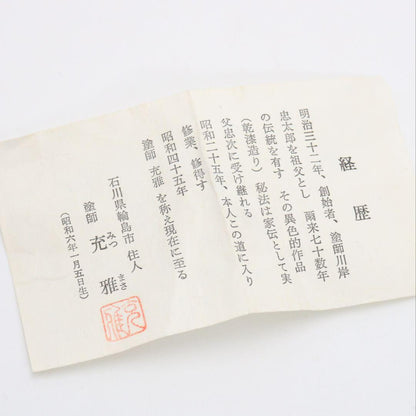 経歴
明治三十二年、創始者、塗師川岸
忠太郎を祖父とし 爾来七十数年
の伝統を有す その異色的作品
（乾漆造り）秘法は家伝として実
父忠次に受け継れる
昭和二十五年、本人この道に入り
修業、修得す
昭和四十五年
塗師 充雅 を称え現在に至る
石川県輪島市 住人
塗師 充雅
みつ まさ
（昭和六年一月五日生）
充雅